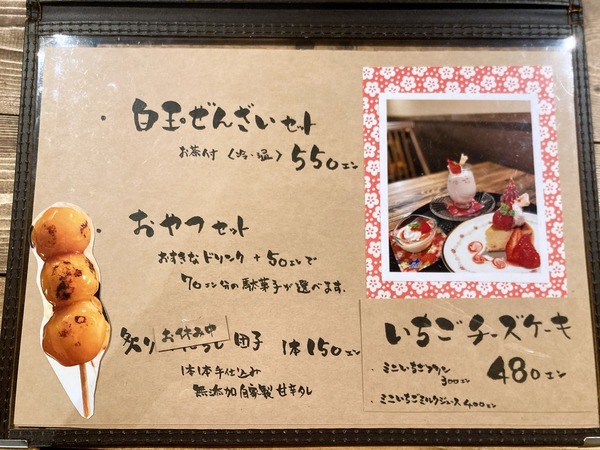 ・白玉ぜんざいセット
お茶付〈冷・温〉550エン
・おやつセット
お好きなドリンク+50エンで
70エン分の駄菓子が選べます。
炙り 団子 1本150エン
お休み中
1本1本手仕込み
無添加自家製甘辛タレ
いちごチーズケーキ
480エン
・ミニいちごプリン
300エン
・ミニいちごミルクジュース400エン